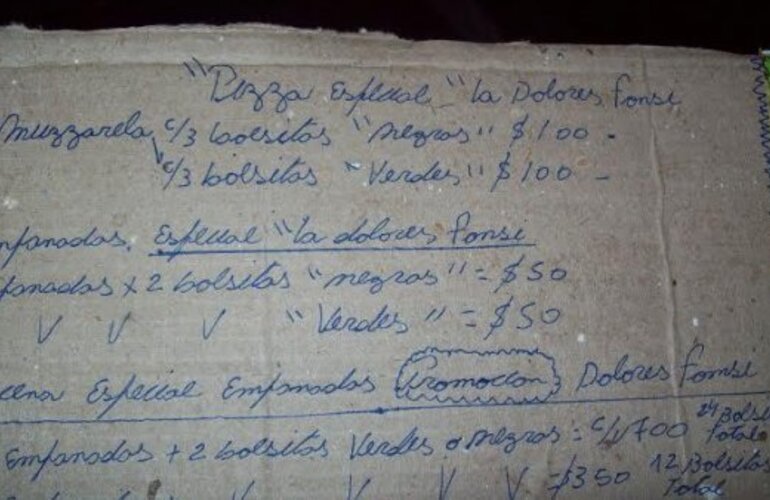 "Pizza Especial" "la Dolores Fonsi
Muzzarela, c/3 bolsitas "negras" $100 -
c/3 bolsitas "Verdes" $100 -
Especial "la dolores fonsi
x 2 bolsitas "negras" = $50
V V V "Verdes" = $50
Especial Empanadas Promocion Dolores Fonsi
Empanadas + 2 bolsitas Verdes o negras = 700 24 Bolsi
Total
V V V = $350 12 Bolsitas
Total